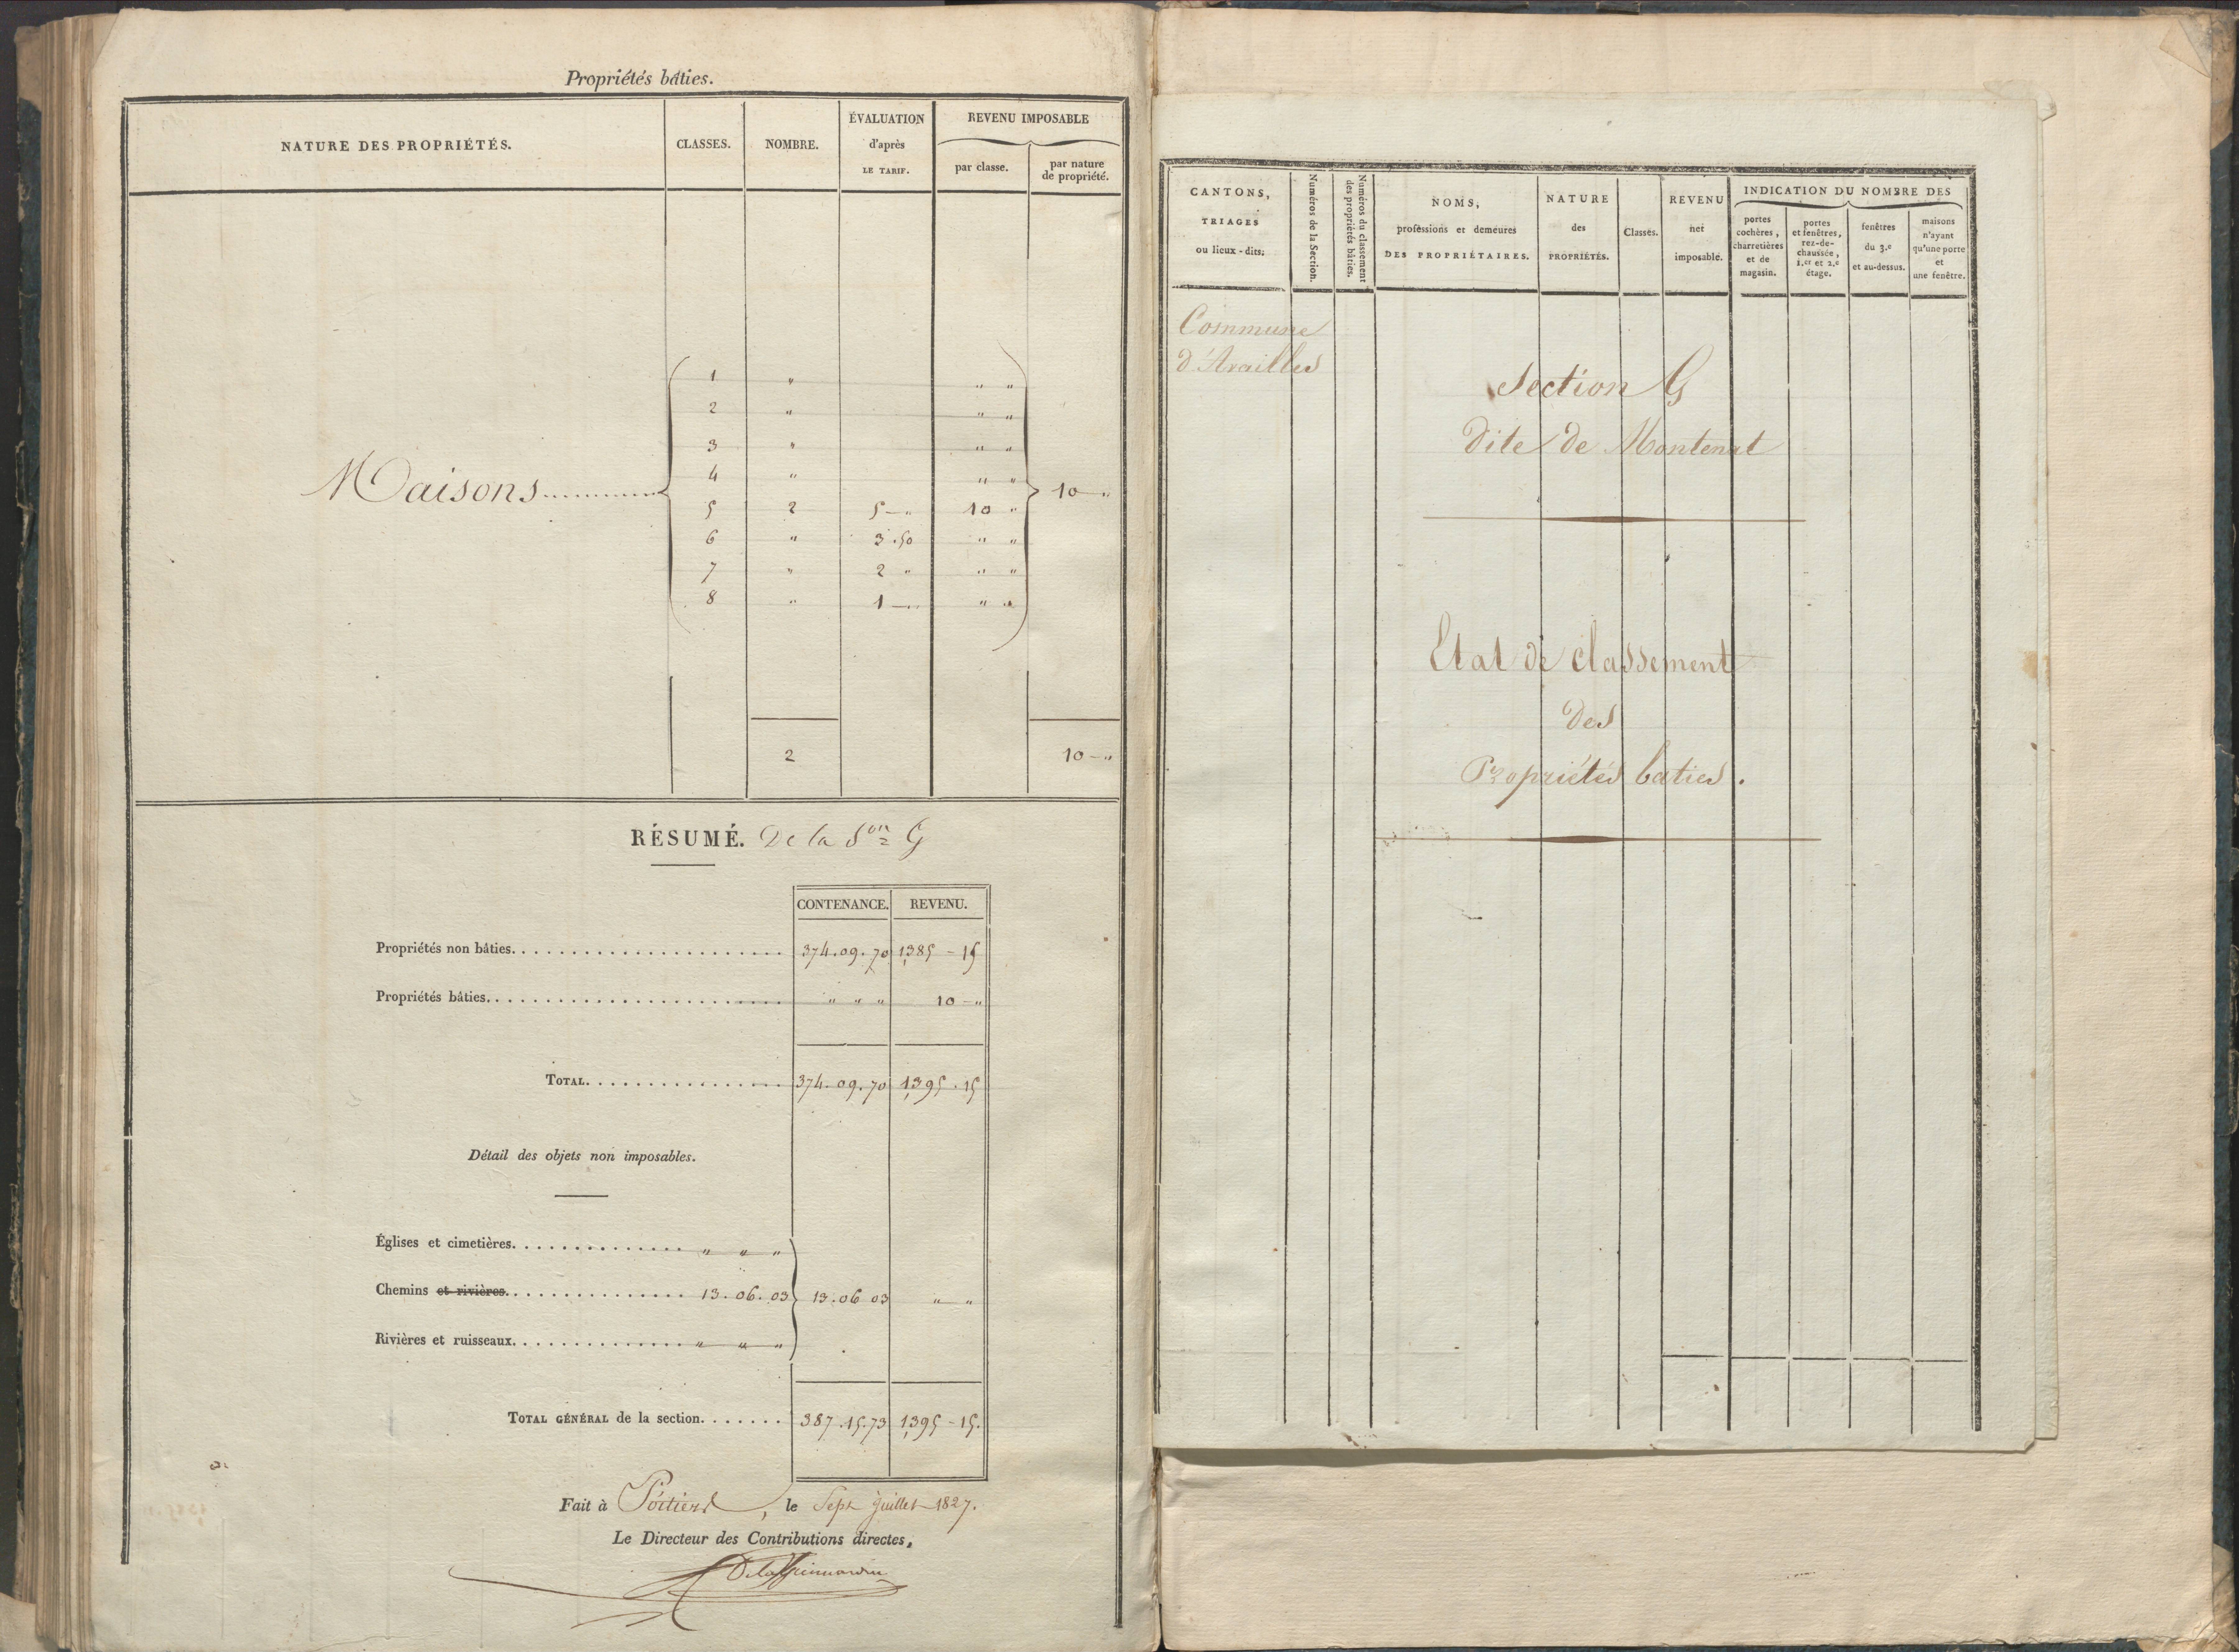 Propriétés bâties.
NATURE DES PROPRIÉTÉS. CLASSES. NOMBRE. ÉVALUATION d'après LE TARIF. REVENU IMPOSABLE par classe. par nature de propriété.
1 " " "
2 " " "
3 " " "
4 " " "
Maisons 10 "
5 2 5 — " 10 "
6 " 3.50 " "
7 " 2 " " "
8 " 1 — " " "
2 10 — "
RÉSUMÉ. De la Son G
CONTENANCE. REVENU.
Propriétés non bâties. 374.09.70 1,385 - 15
Propriétés bâties. " " " 10 - "
TOTAL. 374.09.70 1,395.15
Détail des objets non imposables.
Églises et cimetières. " " "
Chemins et rivières. 13.06.03 13.06 03 " "
Rivières et ruisseaux. " " "
TOTAL GÉNÉRAL de la section. 387.15.73 1,395 - 15.
Fait à Poitiers, le Sept Juillet 1827.
Le Directeur des Contributions directes,
CANTONS, TRIAGES ou lieux-dits.
Numéros de la Section.
Numéros du classement des propriétés bâties.
NOMS, professions et demeures DES PROPRIÉTAIRES.
NATURE des PROPRIÉTÉS.
Classes.
REVENU net imposable.
INDICATION DU NOMBRE DES
portes cochères, charretières et de magasin.
portes et fenêtres, rez-de-chaussée, 1.er et 2.e étage.
fenêtres du 3.e et au-dessus.
maisons n'ayant qu'une porte et une fenêtre.
Commune
d'Availles
Section G
dite de Montenat
Etat de classement
des
Propriétés baties.